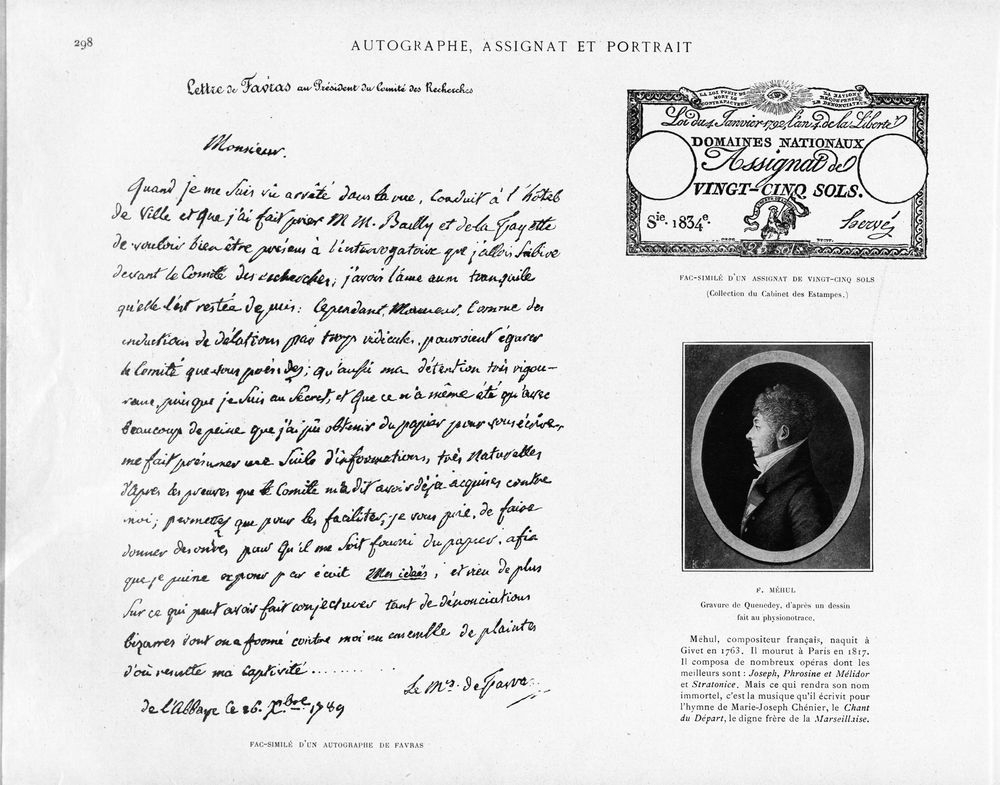 298
AUTOGRAPHE, ASSIGNAT ET PORTRAIT
Lettre de Favras au Président du Comité des Recherches
Monsieur.
Quand je me suis vû arrêté dans la rue, Conduit à l'hôtel
de Ville et que j'ai fait prier M M. Bailly et de la Fayette
de vouloir bien être présens à l'interrogatoire que j'allois subire
devant le Comité des recherches; j'avois l'âme aussi tranquile
qu'elle l'est restéa depuis: Cependant, Monsieur, Comme des
inductions de délations par trop ridicules, pouroient égarer
le Comité que vous présidés; qu'aussi ma détention très vigou-
reuse, puisque je suis au Secret, et que ce n'a même été qu'avec
beaucoup de peine que j'ai pû obtenir du papier pour vous écrire,
me fait présumer une Suite d'informations, très Naturelles
d'après les preuves que le Comité m'a dit avoir déjà acquises contre
moi; permettez que pour les faciliter, je vous prie, de faire
donner des ordres pour qu'il me soit fourni du papier, afin
que je puisse exposer par écrit Mes idées; et rien de plus
sur ce qui peut avoir fait conjecturer tant de dénonciations
bizarres dont on a formé contre moi un ensemble de plaintes
d'où resulte ma captivité..........
Le Mis. de Favras
de l'Abbaye Ce 26. Xbre 1789
FAC-SIMILÉ D'UN AUTOGRAPHE DE FAVRAS
LA LOI PUNIT DE MORT LE CONTREFACTEUR
LA NATION RÉCOMPENSE LE DÉNONCIATEUR
Loi du 4 Janvier 1792 l'an 4. de la Liberté
DOMAINES NATIONAUX
Assignat de
VINGT-CINQ SOLS.
Sie. 1834e.
Hervé
FAC-SIMILÉ D'UN ASSIGNAT DE VINGT-CINQ SOLS
(Collection du Cabinet des Estampes.)
F. MÉHUL
Gravure de Quenedey, d'après un dessin
fait au physionotrace.
Méhul, compositeur français, naquit à
Givet en 1763. Il mourut à Paris en 1817.
Il composa de nombreux opéras dont les
meilleurs sont : Joseph, Phrosine et Mélidor
et Stratonice. Mais ce qui rendra son nom
immortel, c'est la musique qu'il écrivit pour
l'hymne de Marie-Joseph Chénier, le Chant
du Départ, le digne frère de la Marseillaise.